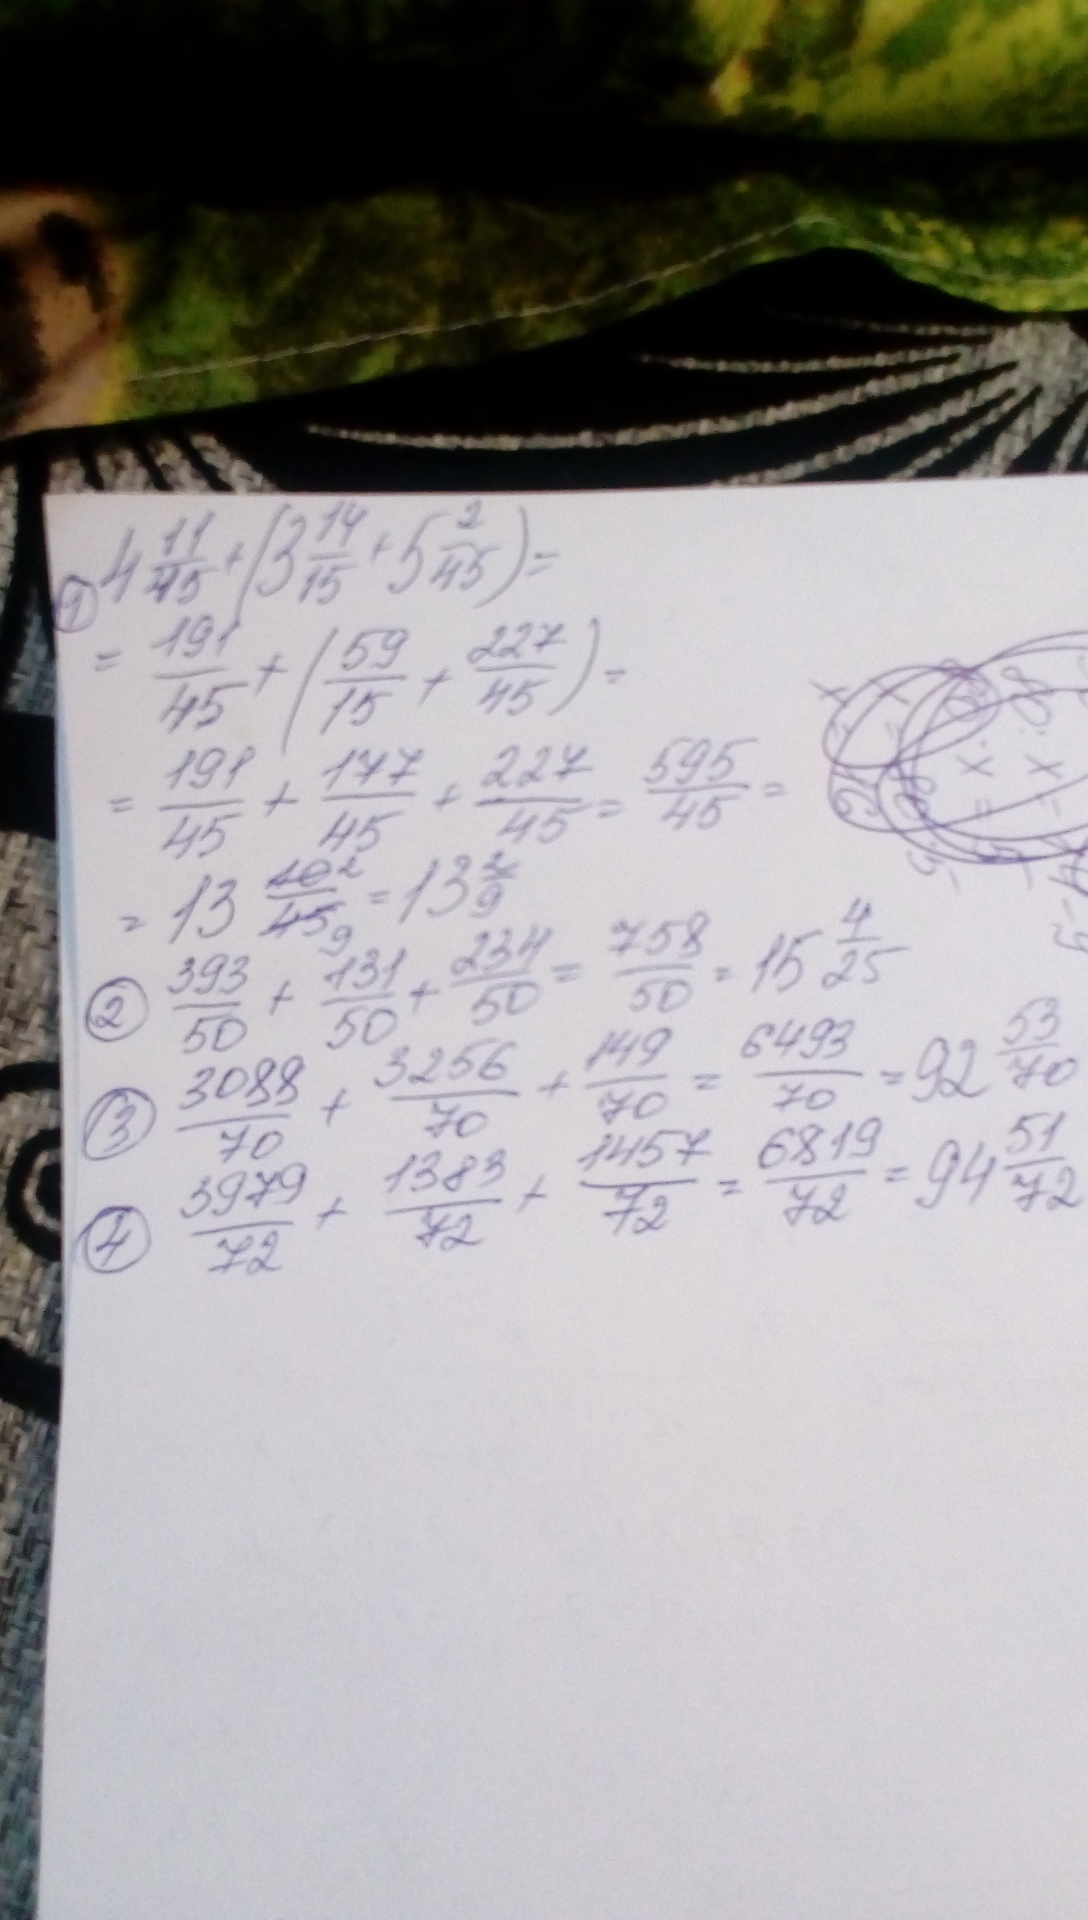 ① 4 11/45 + (3 14/15 + 5 2/45) =
= 191/45 + (59/15 + 227/45) =
= 191/45 + 177/45 + 227/45 = 595/45 =
= 13 10/45 2/9 = 13 2/9
② 393/50 + 131/50 + 234/50 = 758/50 = 15 4/25
③ 3088/70 + 3256/70 + 149/70 = 6493/70 = 92 53/70
④ 3979/72 + 1383/72 + 1457/72 = 6819/72 = 94 51/72